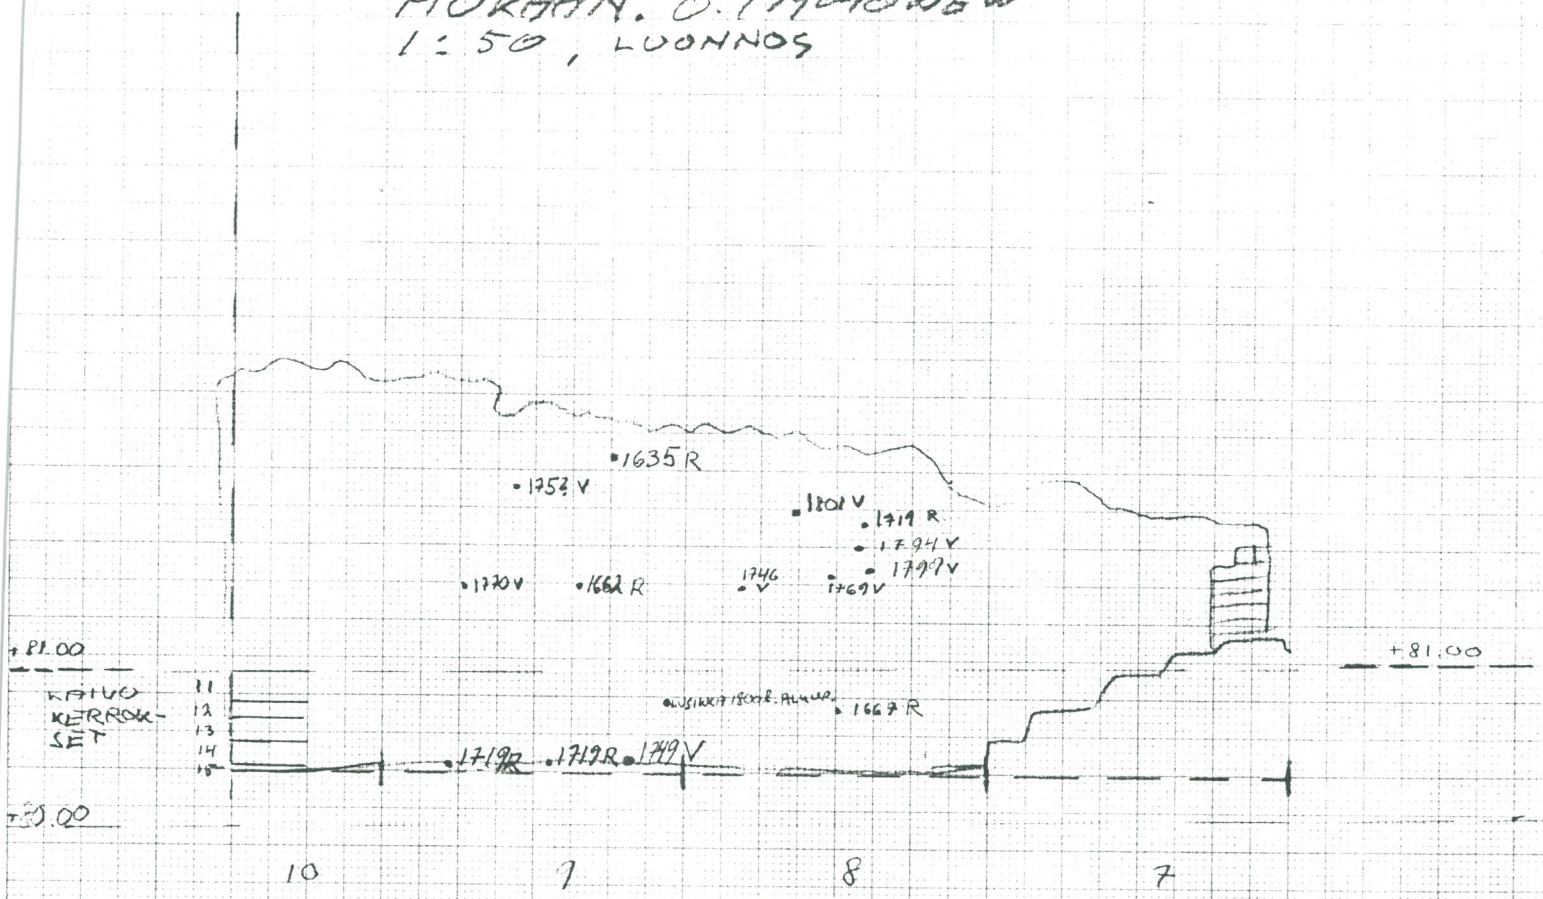 MUKAAN. O.
1:50, LUONNOS
1635 R
1752 V
1801 V
1719 R
1794 V
1799 V
1770 V
1662 R
1746
V
1769 V
+81.00
+81.00
KAIVO
KERROK-
SET
11
12
13
14
15
1667 R
1719R
1719R
1749 V
10
9
8
7